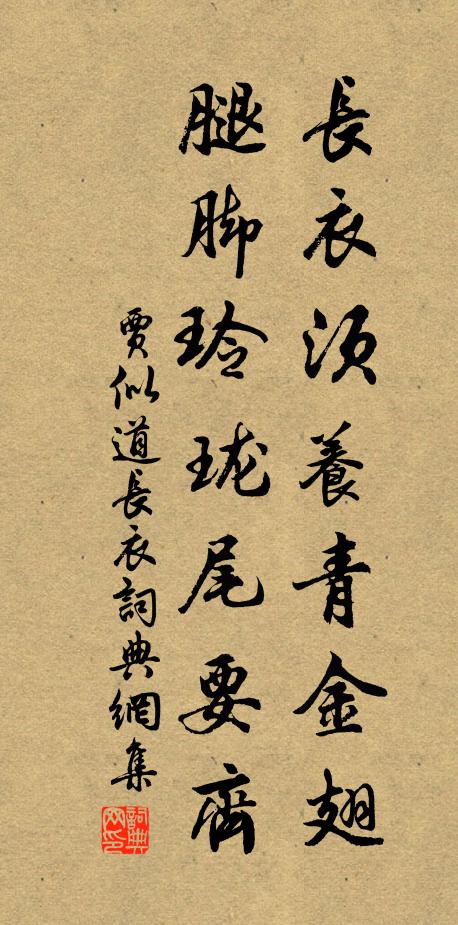 長衣須養青金翅
腿脚玲瓏尾要齊
賈似道長衣詞典網集
詞典網印